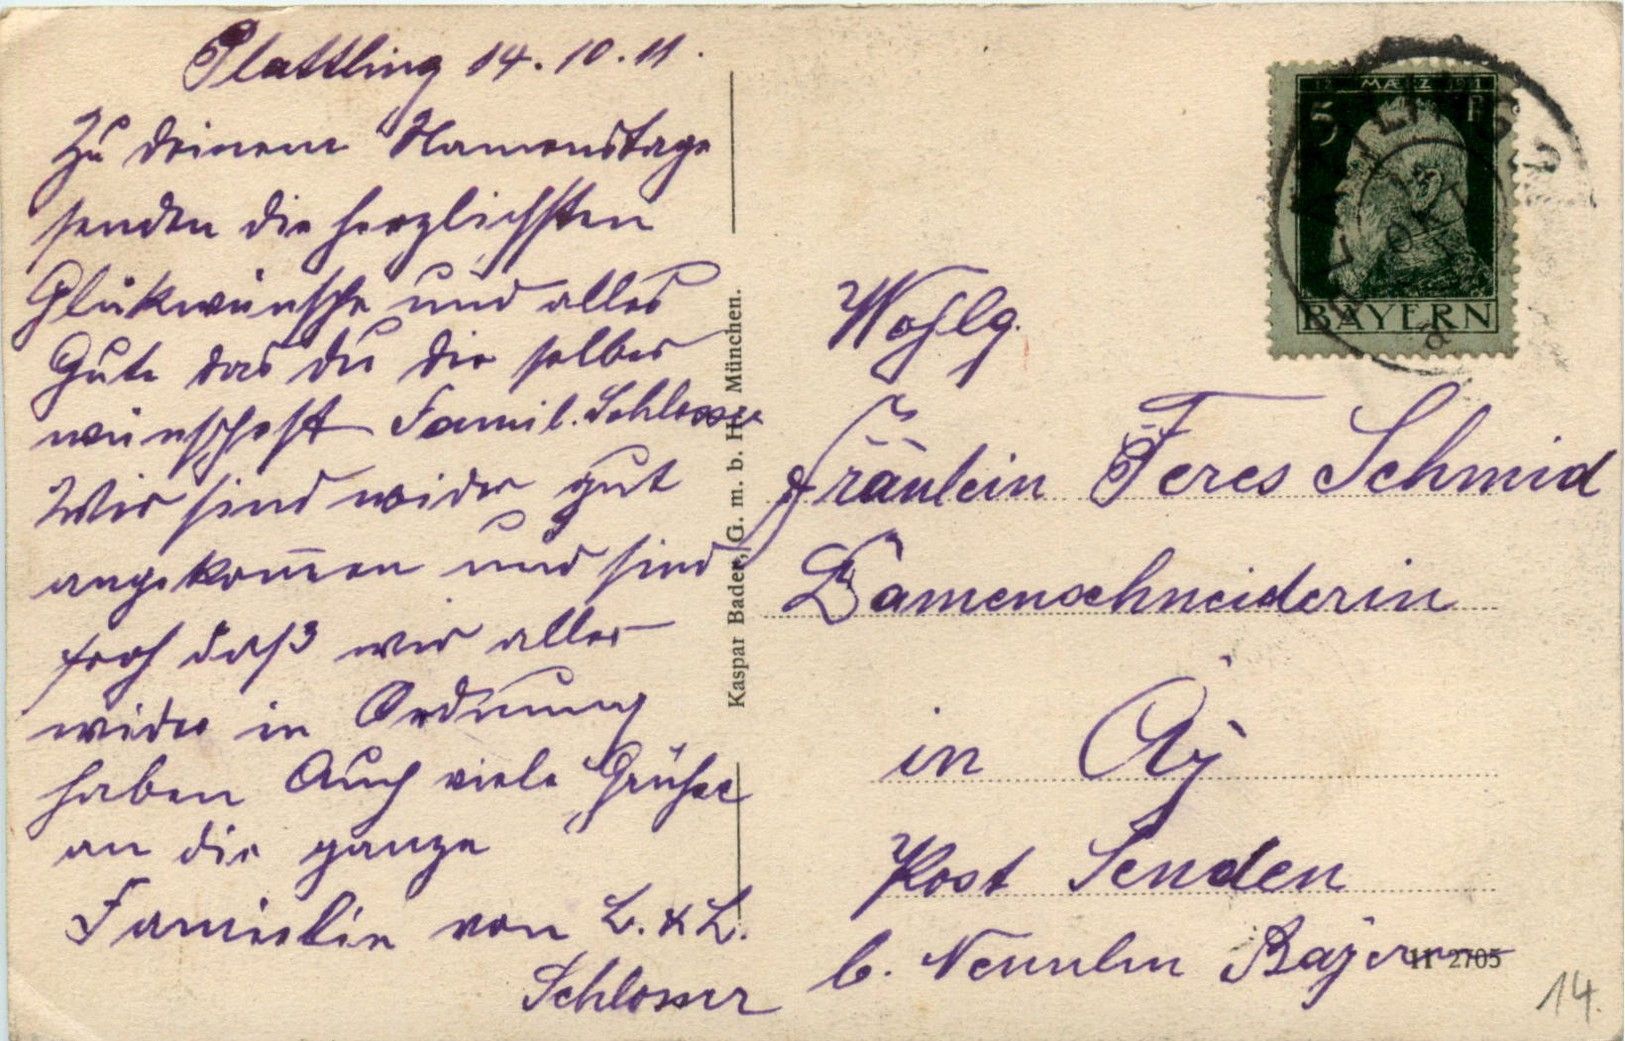 Plattling 14.10.11.
Zu deinem Namenstage
senden die herzlichsten
Glükwünsche und alles
Gute das du dir selber
wünschest Famil. Schlosser
Wir sind wider gut
angekom̄en und sind
froh daß wir alles
wider in Ordnung
haben Auch viele Grüße
an die ganze
Familie von L. & L.
Schlosser
Kaspar Bader, G. m. b. H. München.
12. MÄRZ 1911
5 PF
BAYERN
Wohlg.
Fräulein Teres Schmid
Damenschneiderin
in Aÿ
Post Senden
b. Neuulm Bayern
11 2705
14.